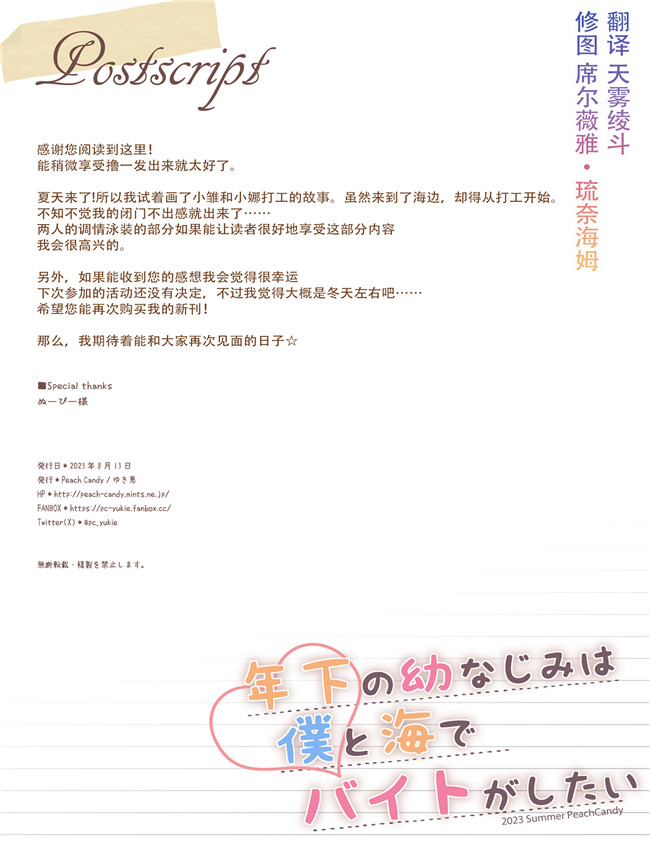 Postscript
翻译 天雾绫斗
修图 席尔薇雅·琉奈海姆
感谢您阅读到这里！
能稍微享受撸一发出来就太好了。
夏天来了!所以我试着画了小雏和小娜打工的故事。虽然来到了海边，却得从打工开始。
不知不觉我的闭门不出感就出来了……
两人的调情泳装的部分如果能让读者很好地享受这部分内容
我会很高兴的。
另外，如果能收到您的感想我会觉得很幸运
下次参加的活动还没有决定，不过我觉得大概是冬天左右吧……
希望您能再次购买我的新刊！
那么，我期待着能和大家再次见面的日子☆
■Special thanks
ぬーぴー様
発行日＊2023年8月13日
発行＊Peach Candy / ゆき恵
HP＊http://peach-candy.mints.ne.jp/
FANBOX＊https://pc-yukie.fanbox.cc/
Twitter(X)＊@pc_yukie
無断転載・複製を禁止します。
年下の幼なじみは
僕と海で
バイトがしたい
2023 Summer PeachCandy